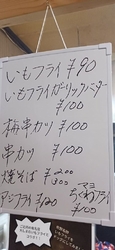 いもフライ ¥90
いもフライガーリックバター
¥100
梅串カツ ¥100
串カツ ¥100
焼そば ¥200
300
マヨ
ちくわフライ
¥100
アジフライ ¥120